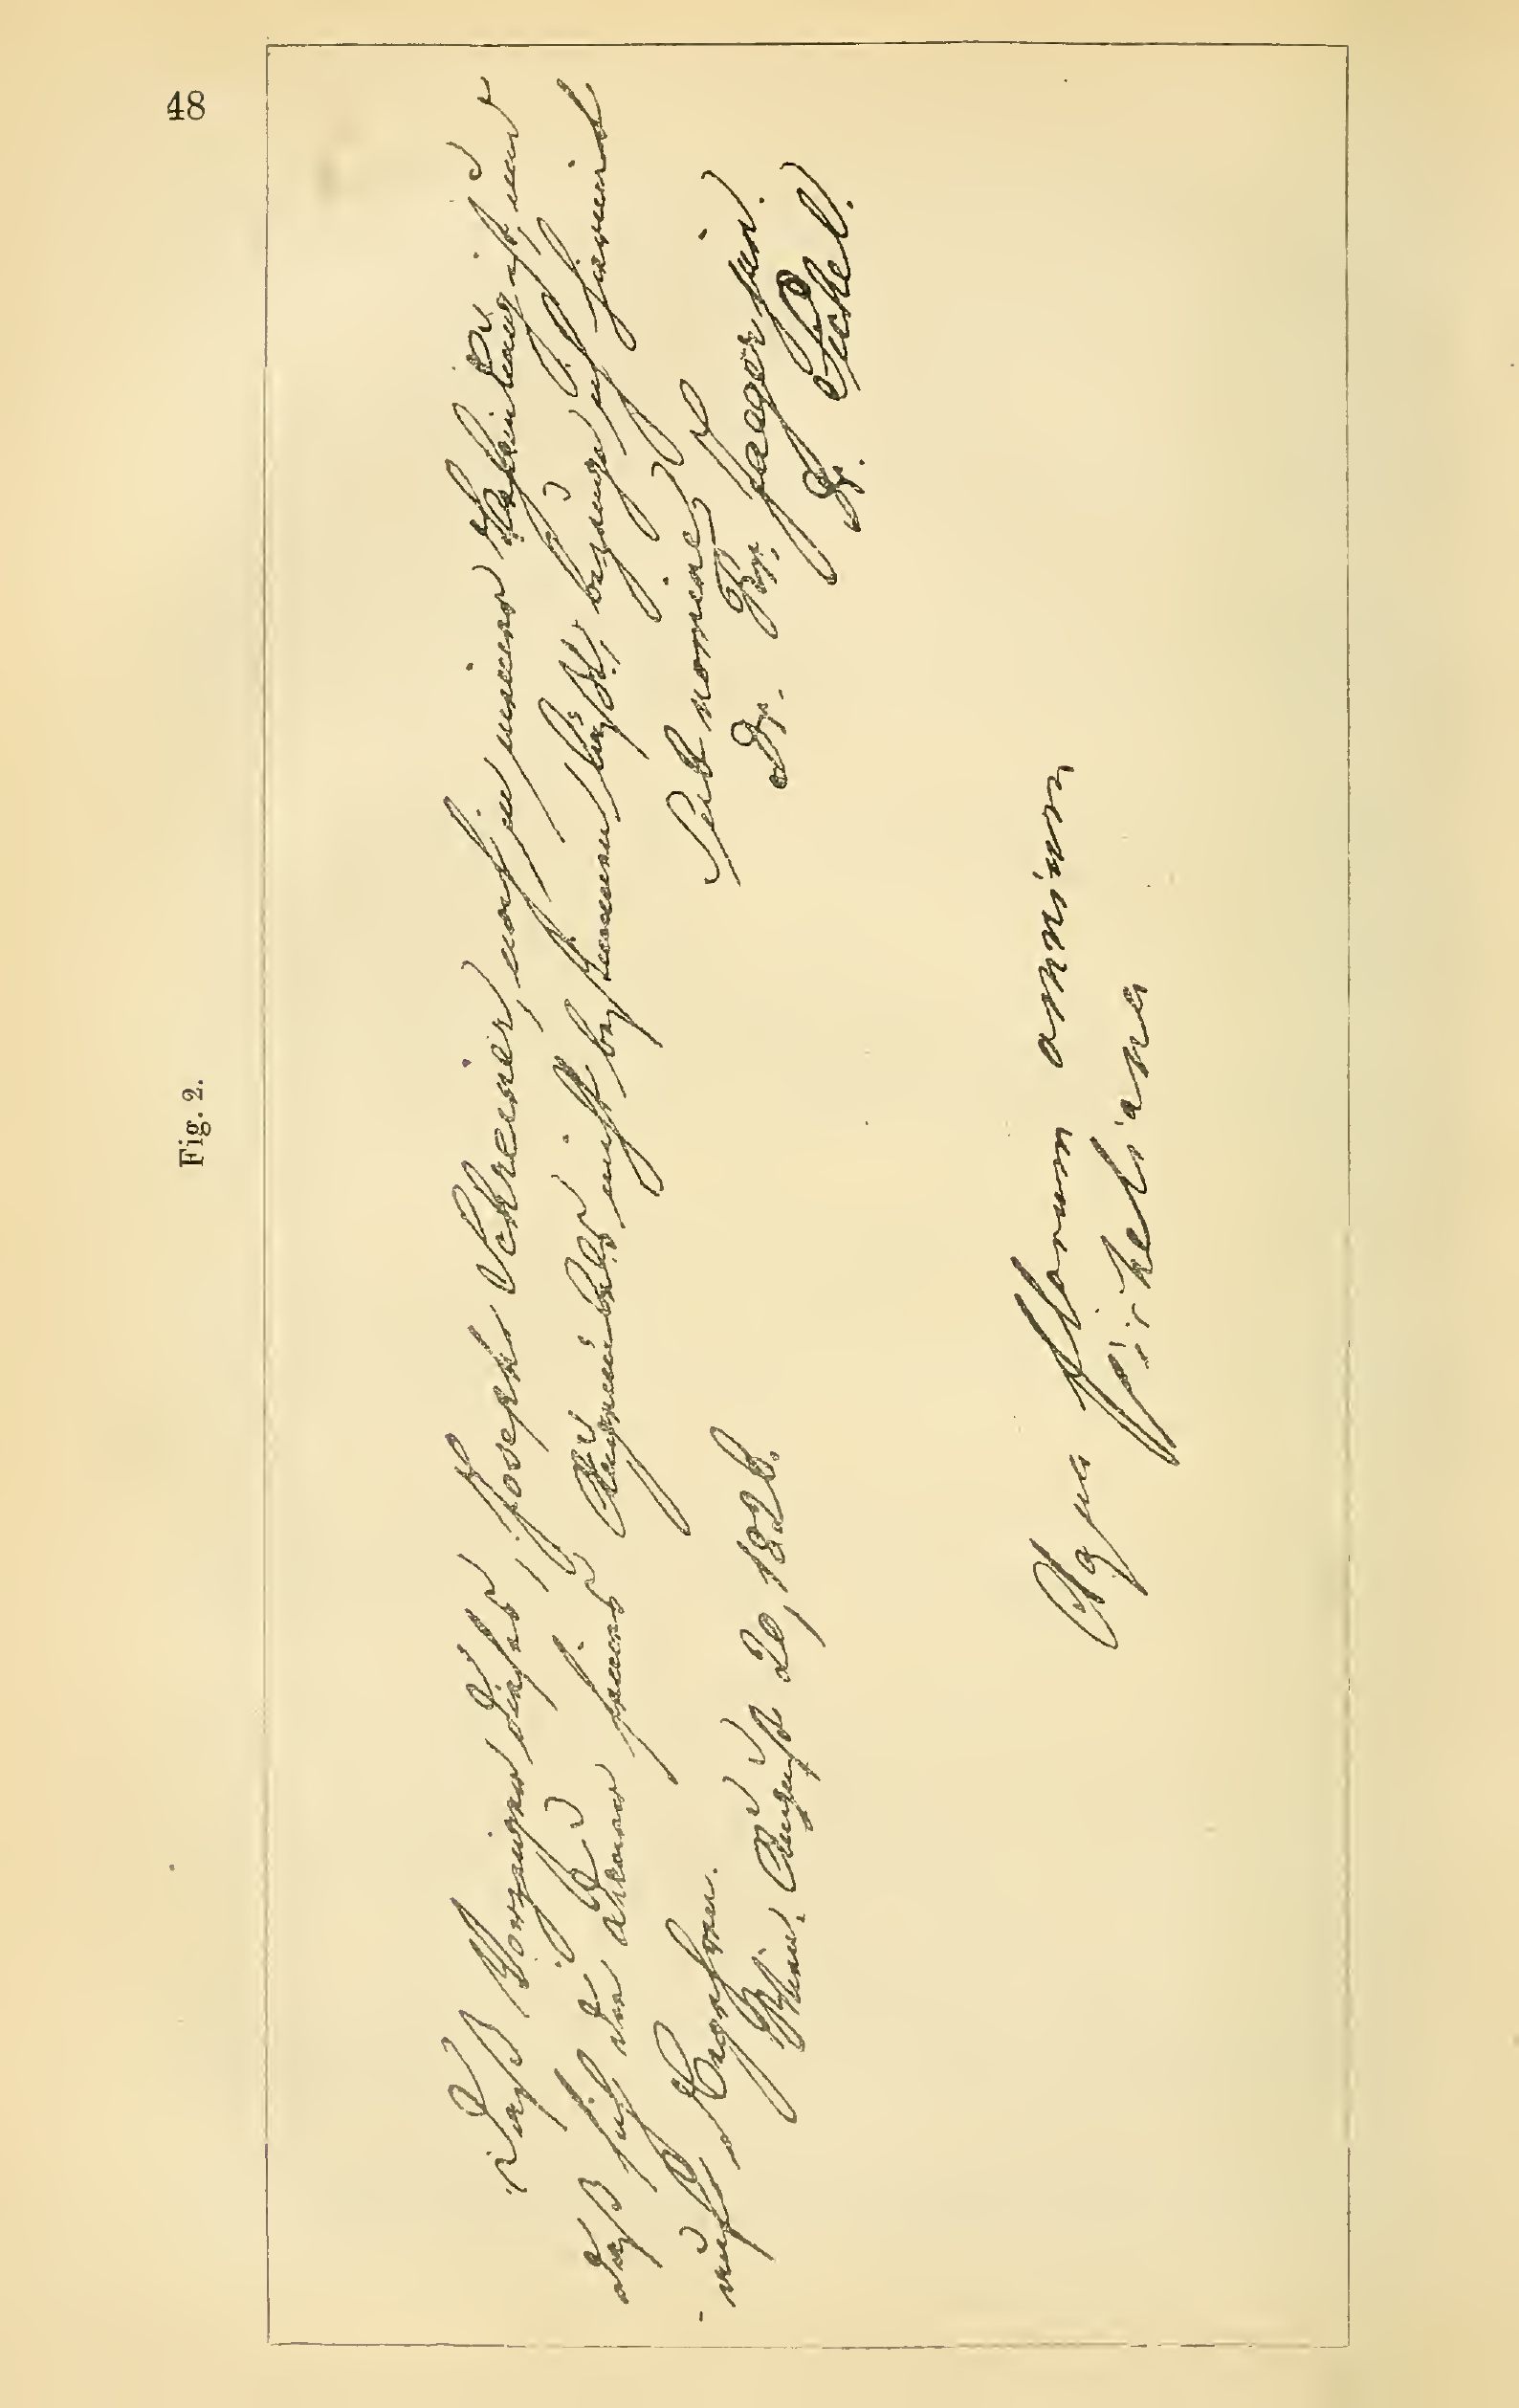 48
Fig. 2.
Daß Vorzeiger dieses, Joseph Schreiner, noch in meiner Behandlung ist, und
daß sich der seines Augenübels nicht bestimmen läßt, bezeuge ich hiermit
auf Begehren.
Sub nomine
Wien. August 20, 1826.
Dr. Pr. Jaeger jun.
Dr. Sichel.
Aqua florum omnium
Sicheliana